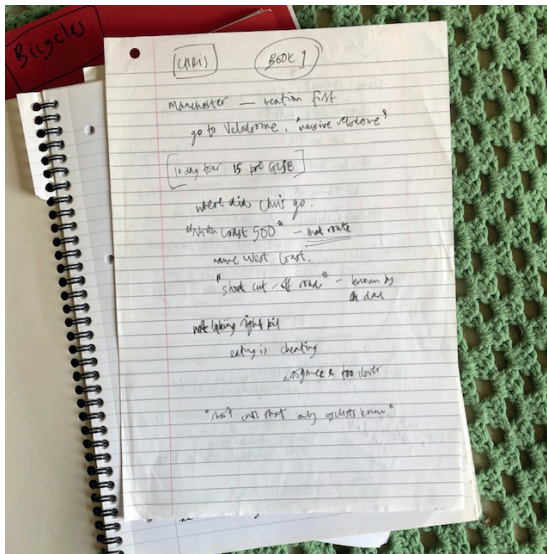 Bicycles
Chris BOOK 1
Manchester — mention first.
go to Velodrome. "massive velodrome"
10 day tour 15 pre GCSE
where did Chris go.
"North Coast 500" — that route
name West Coast.
"short cut / off road" — known by
dad
not taking right kit
eating is cheating
arrogance & too clever
"short cuts that only cyclists know"